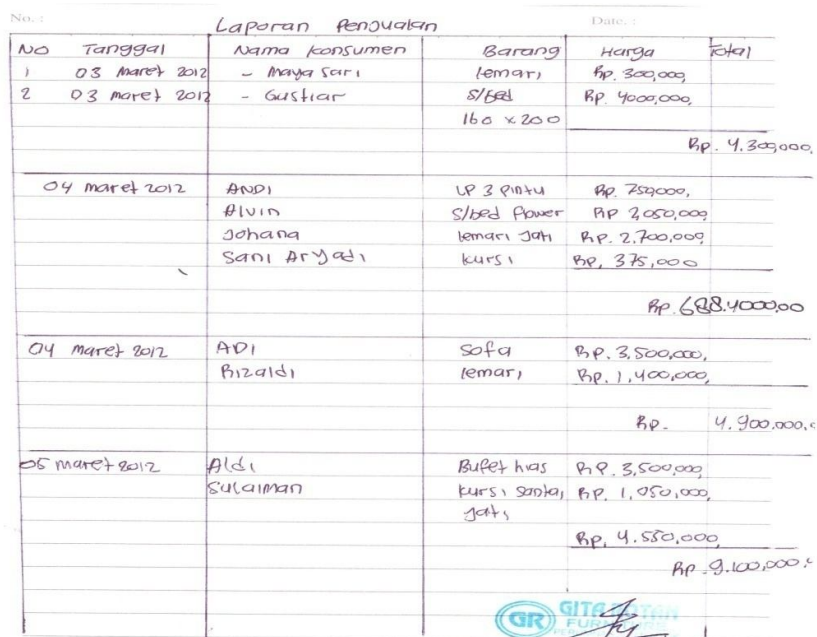 No. :
Date. :
Laporan Penjualan
NO Tanggal Nama konsumen Barang Harga Total
1 03 Maret 2012 - Maya Sari lemari Rp. 300,000,
2 03 maret 2012 - Gustiar S/bed Rp. 4000,000,
160 x 200
Rp. 4.300,000,
04 maret 2012 ANDI LP 3 Pintu Rp. 759000,
Alvin S/bed flower Rp 2,050,000
Johana lemari Jati Rp. 2.700,000
Sani Aryadi kursi Rp. 375,000
Rp. 688.4000,00
04 maret 2012 ADI Sofa Rp. 3,500,000,
Rizaldi lemari Rp. 1,400,000,
Rp. 4.900.000,
05 maret 2012 Aldi Bufet hias Rp. 3,500,000,
Sulaiman kursi santai Rp. 1,050,000,
Jati
Rp. 4.550,000,
Rp. 9.100,000,
GR GITA ROTAN
FURNITURE